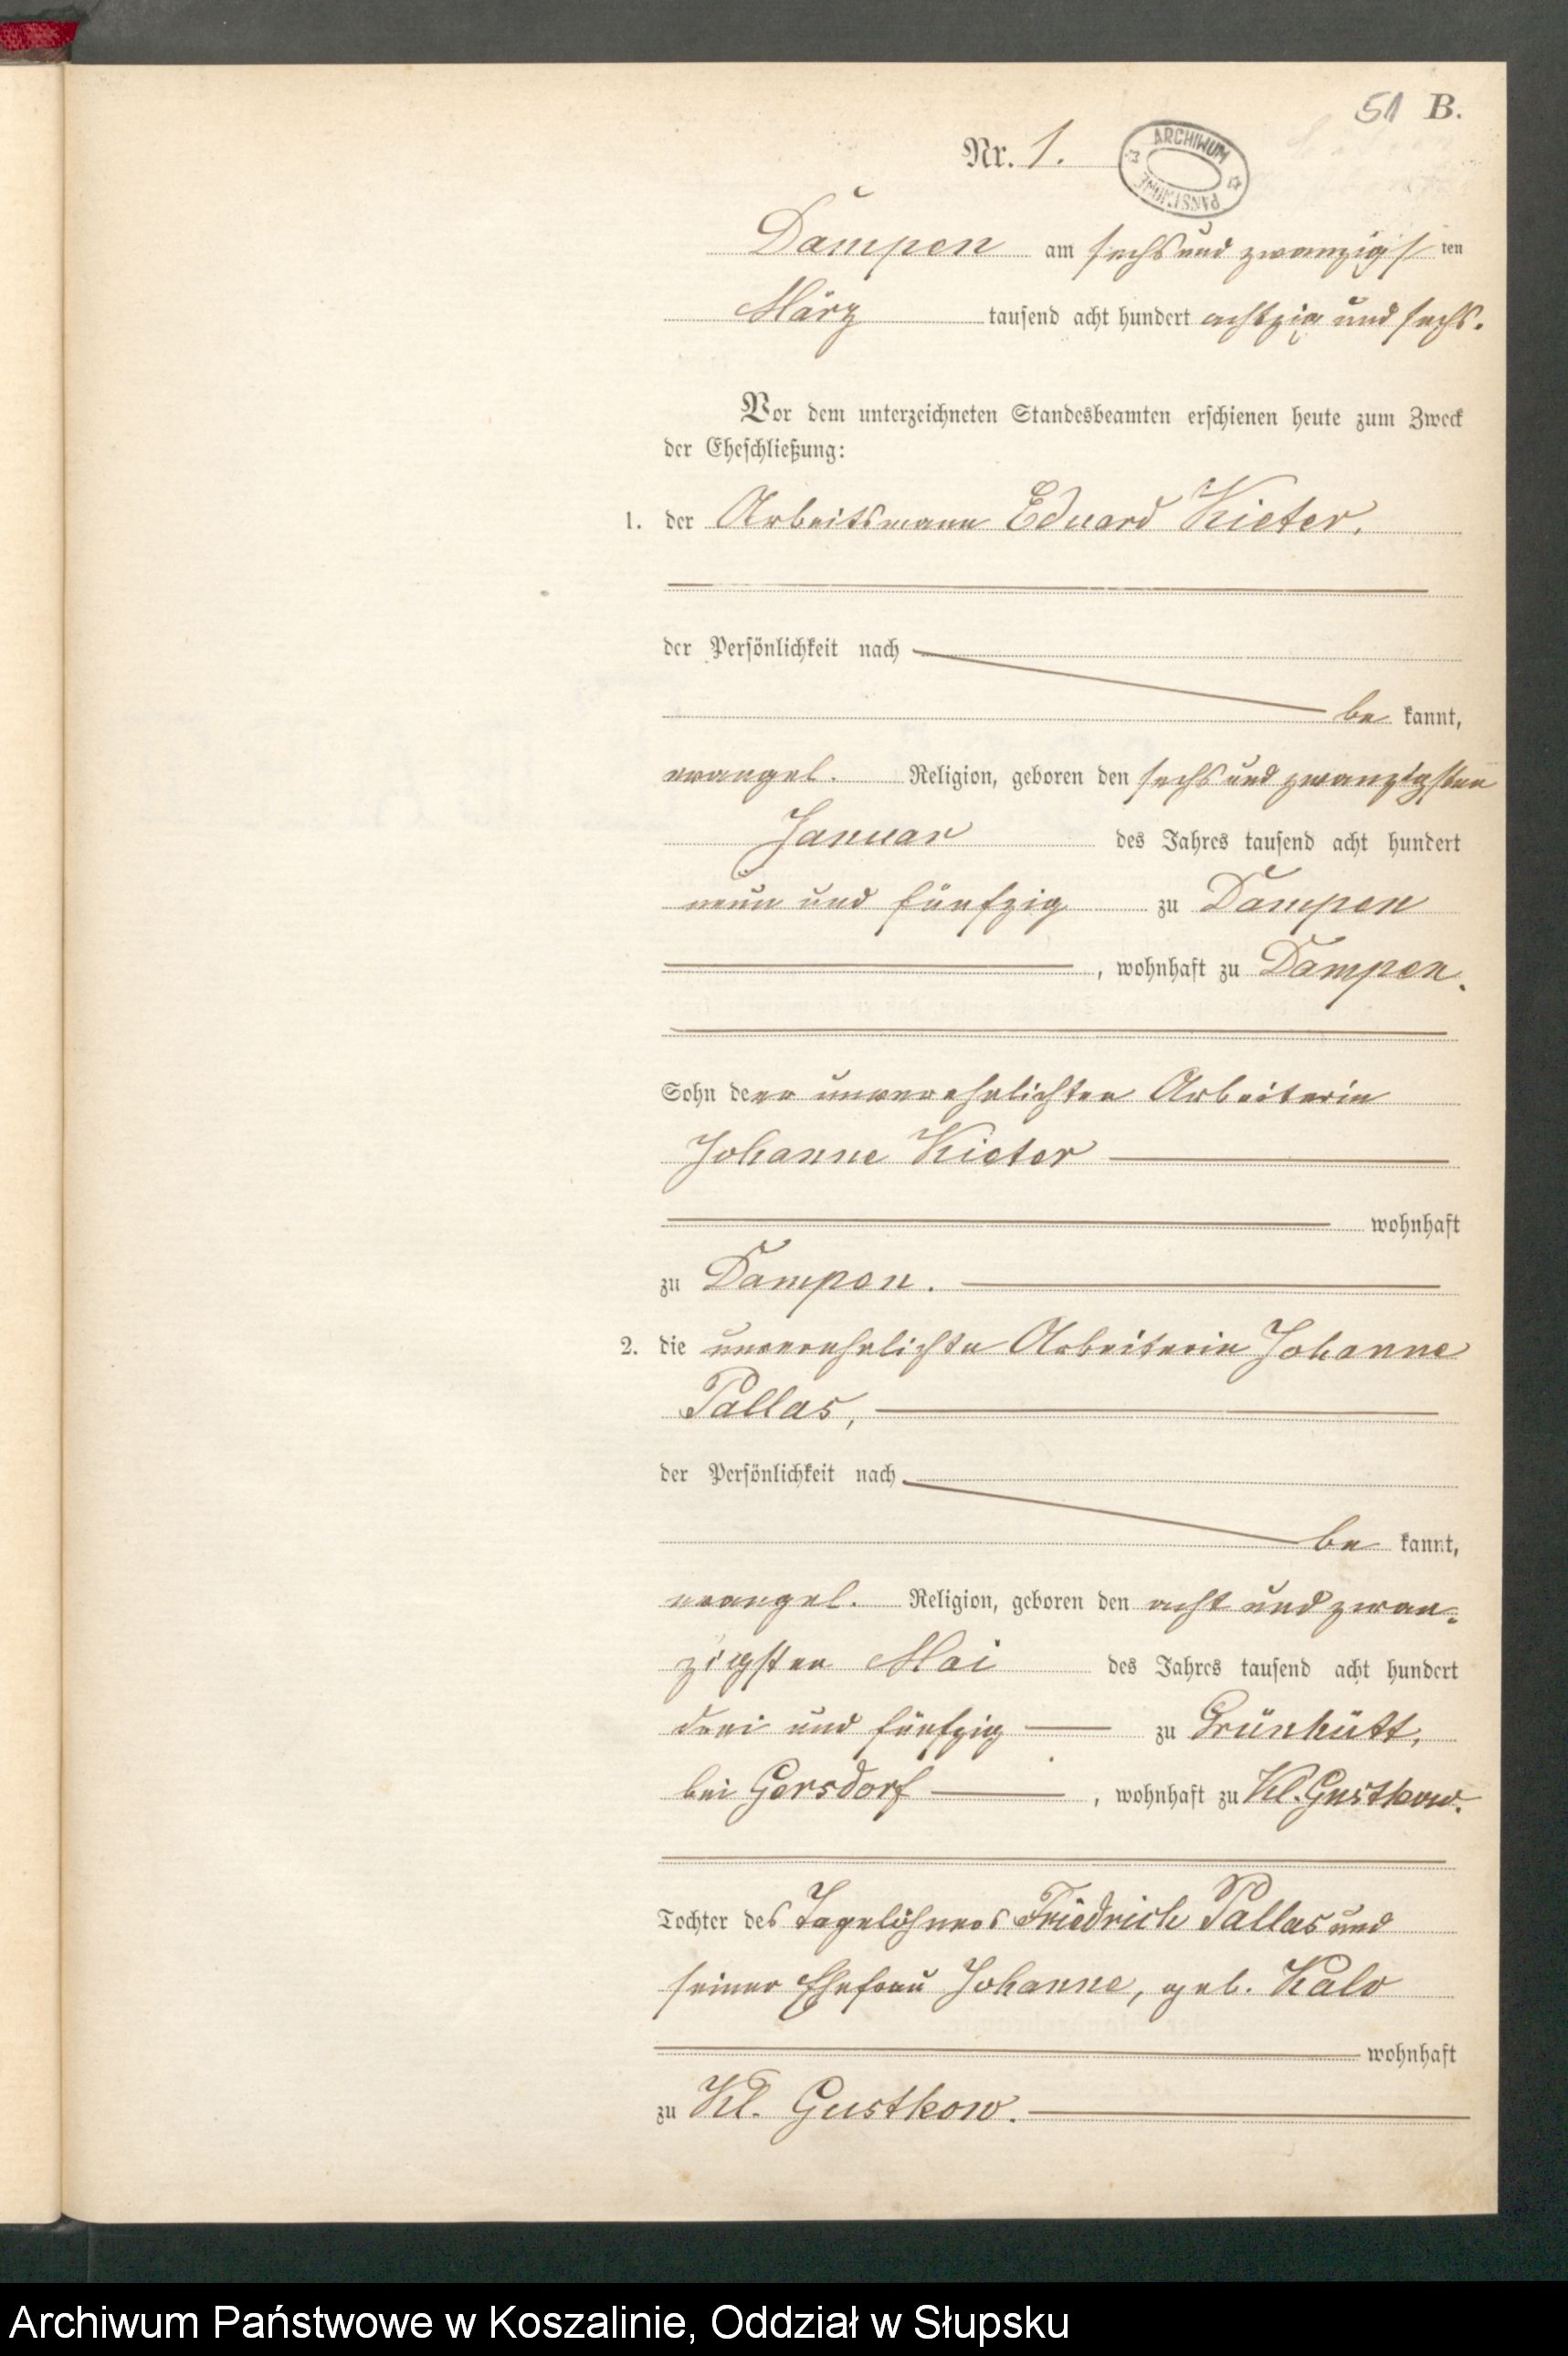 51 B.
Nr. 1.
ARCHIWUM PAŃSTWOWE
Dampen am sechs und zwanzigsten
März tausend acht hundert achtzig und sechs.
Vor dem unterzeichneten Standesbeamten erschienen heute zum Zweck
der Eheschließung:
1. der Arbeitsmann Eduard Kieter,
der Persönlichkeit nach
be kannt,
evangel. Religion, geboren den sechs und zwanzigsten
Januar des Jahres tausend acht hundert
neun und fünfzig zu Dampen
, wohnhaft zu Dampen.
Sohn der unverehelichten Arbeiterin
Johanne Kieter
wohnhaft
zu Dampen.
2. die unverehelichte Arbeiterin Johanne
Pallas,
der Persönlichkeit nach
be kannt,
evangel. Religion, geboren den acht und zwan-
zigsten Mai des Jahres tausend acht hundert
drei und fünfzig zu Grünhütt,
bei Gersdorf , wohnhaft zu Kl. Gustkow.
Tochter des Tagelöhners Friedrich Pallas und
seiner Ehefrau Johanne, geb. Kalv
wohnhaft
zu Kl. Gustkow.
Archiwum Państwowe w Koszalinie, Oddział w Słupsku